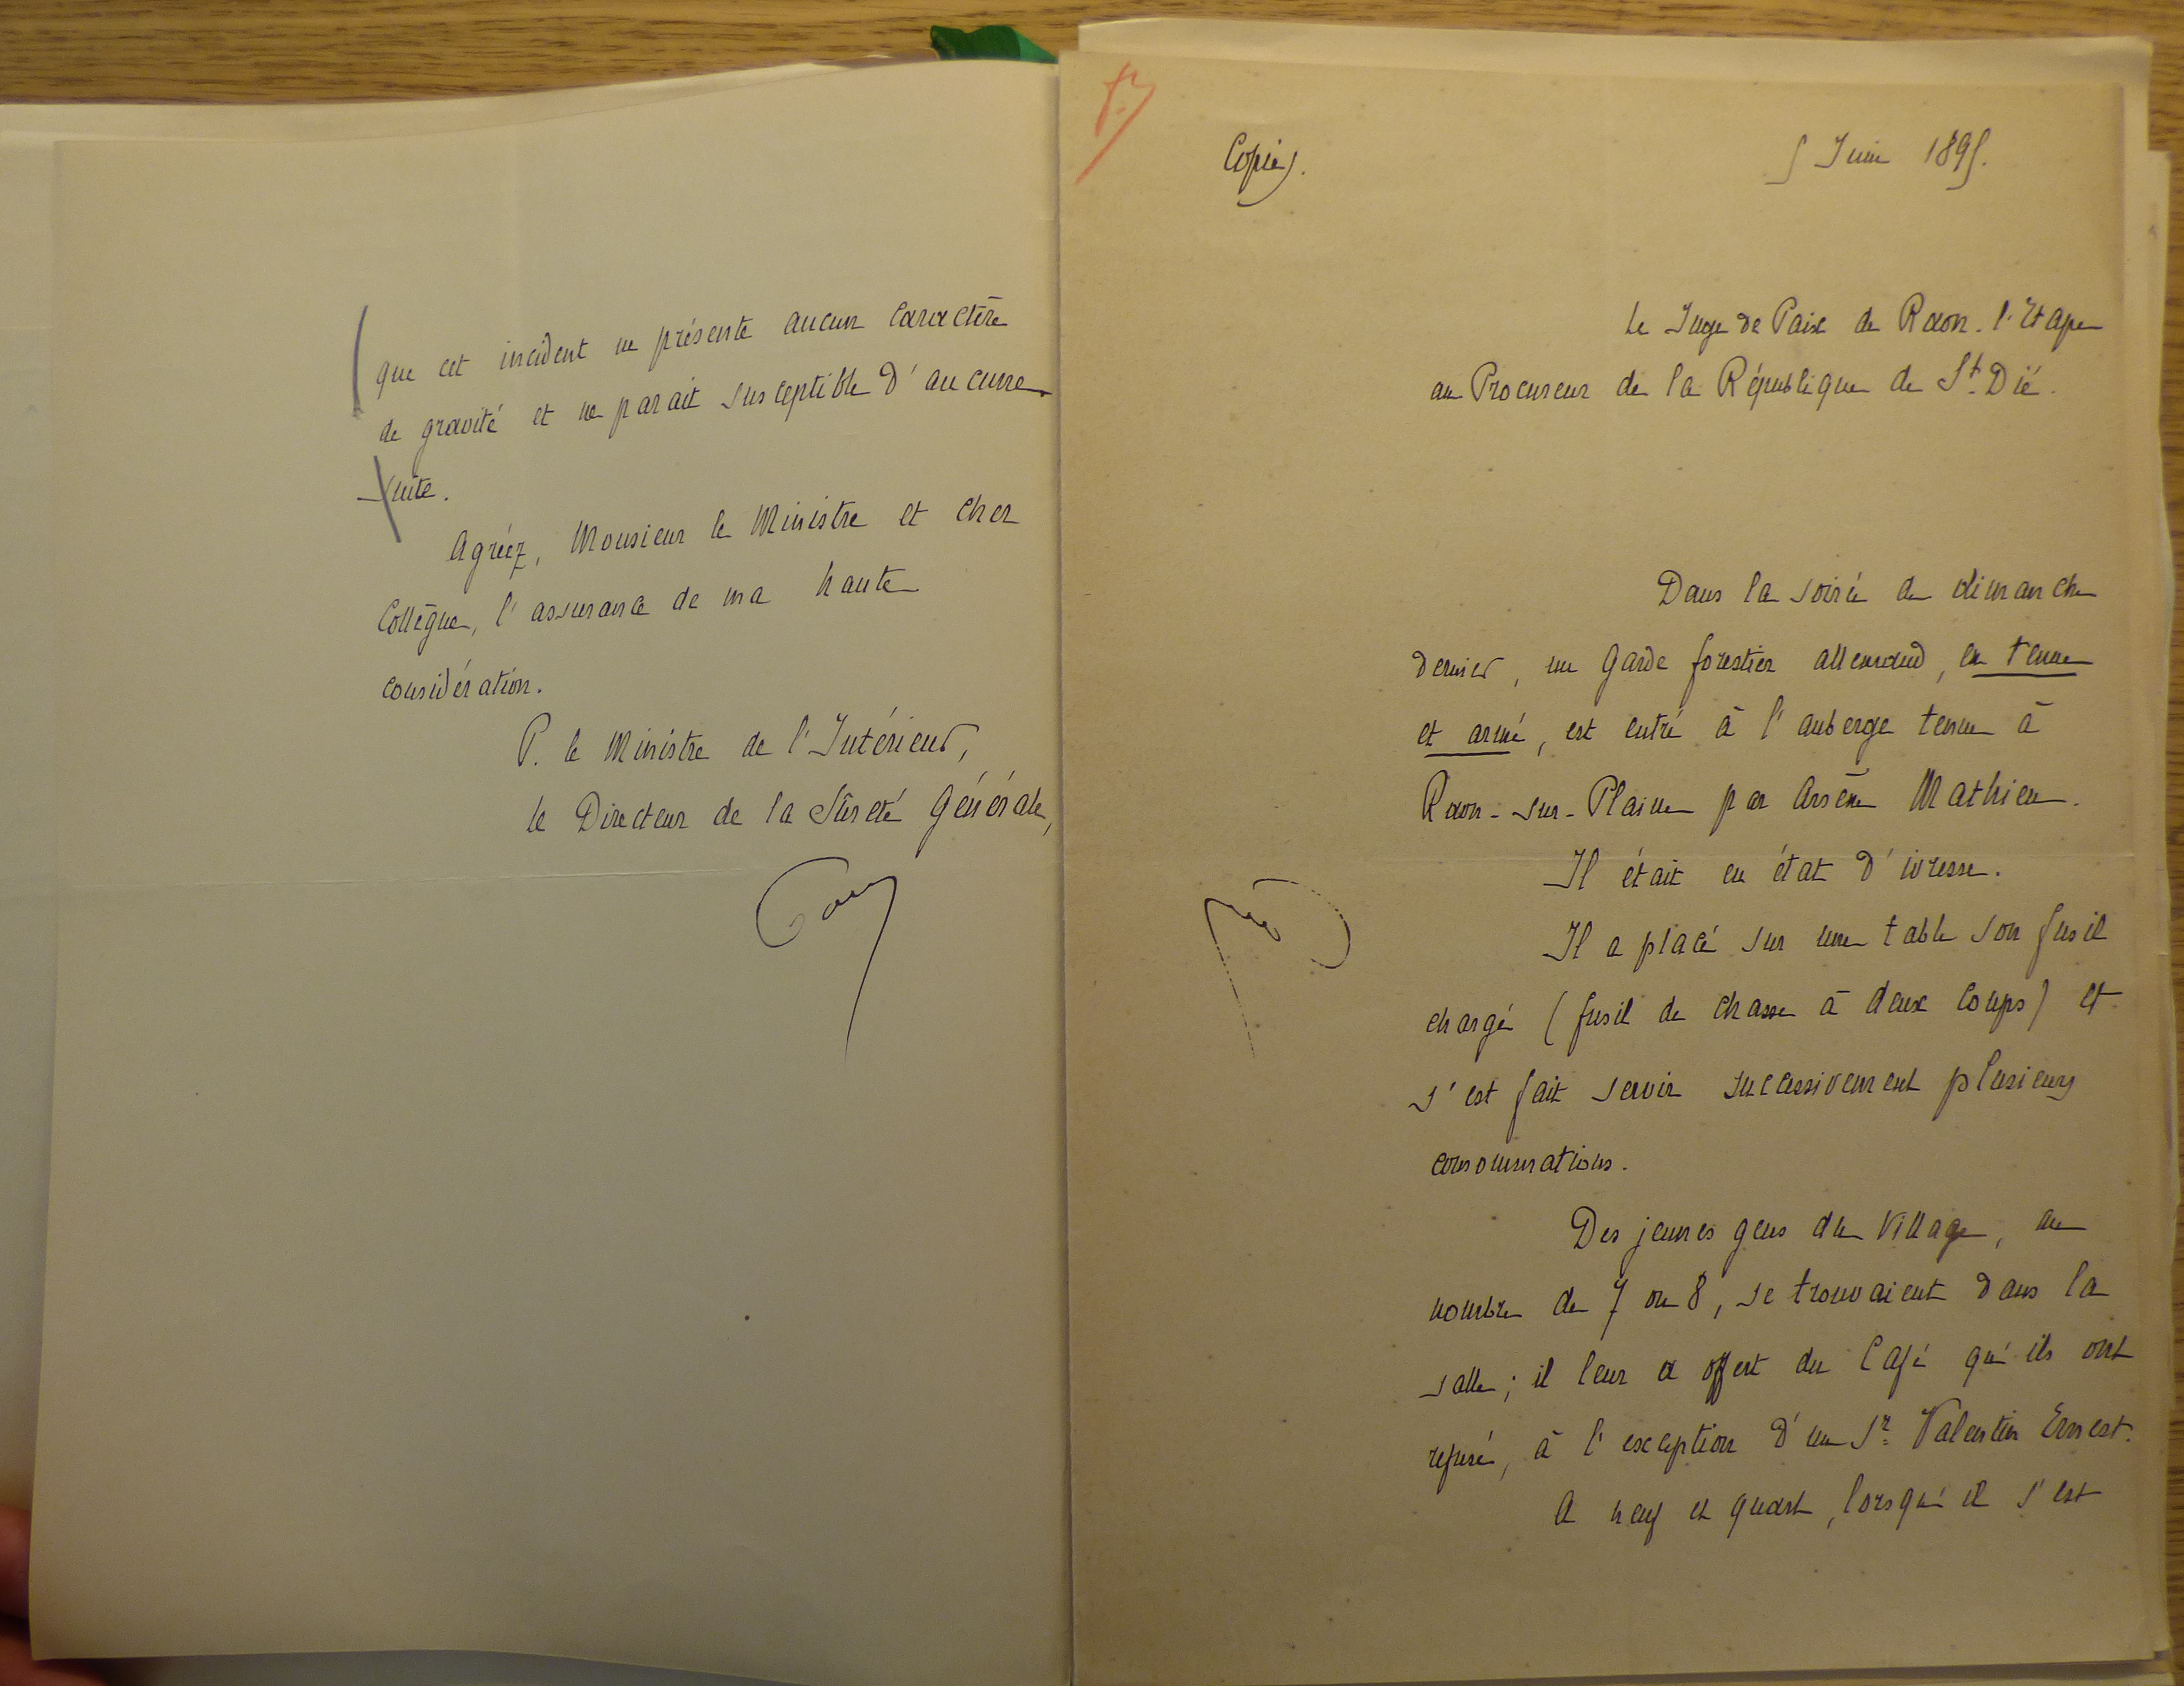 que cet incident ne présente aucun caractère
de gravité et ne parait susceptible d'aucune
suite.
Agréez, Monsieur le Ministre et cher
Collègue, l'assurance de ma haute
considération.
P. le Ministre de l'Intérieur,
le Directeur de la Sûreté Générale,
Copie.
5 Juin 1895.
Le Juge de Paix de Raon-l'Etape
au Procureur de la République de St. Dié.
Dans la soirée de dimanche
dernier, un garde forestier allemand, en tenue
et armé, est entré à l'auberge tenue à
Raon-sur-Plaine par Arsène Mathieu.
Il était en état d'ivresse.
Il a placé sur une table son fusil
chargé (fusil de chasse à deux coups) et
s'est fait servir successivement plusieurs
consommations.
Des jeunes gens du village, au
nombre de 7 ou 8, se trouvaient dans la
salle; il leur a offert du café qu'ils ont
refusé, à l'exception d'un Sr. Valentin Ernest.
A neuf et quart, lorsqu'il s'est